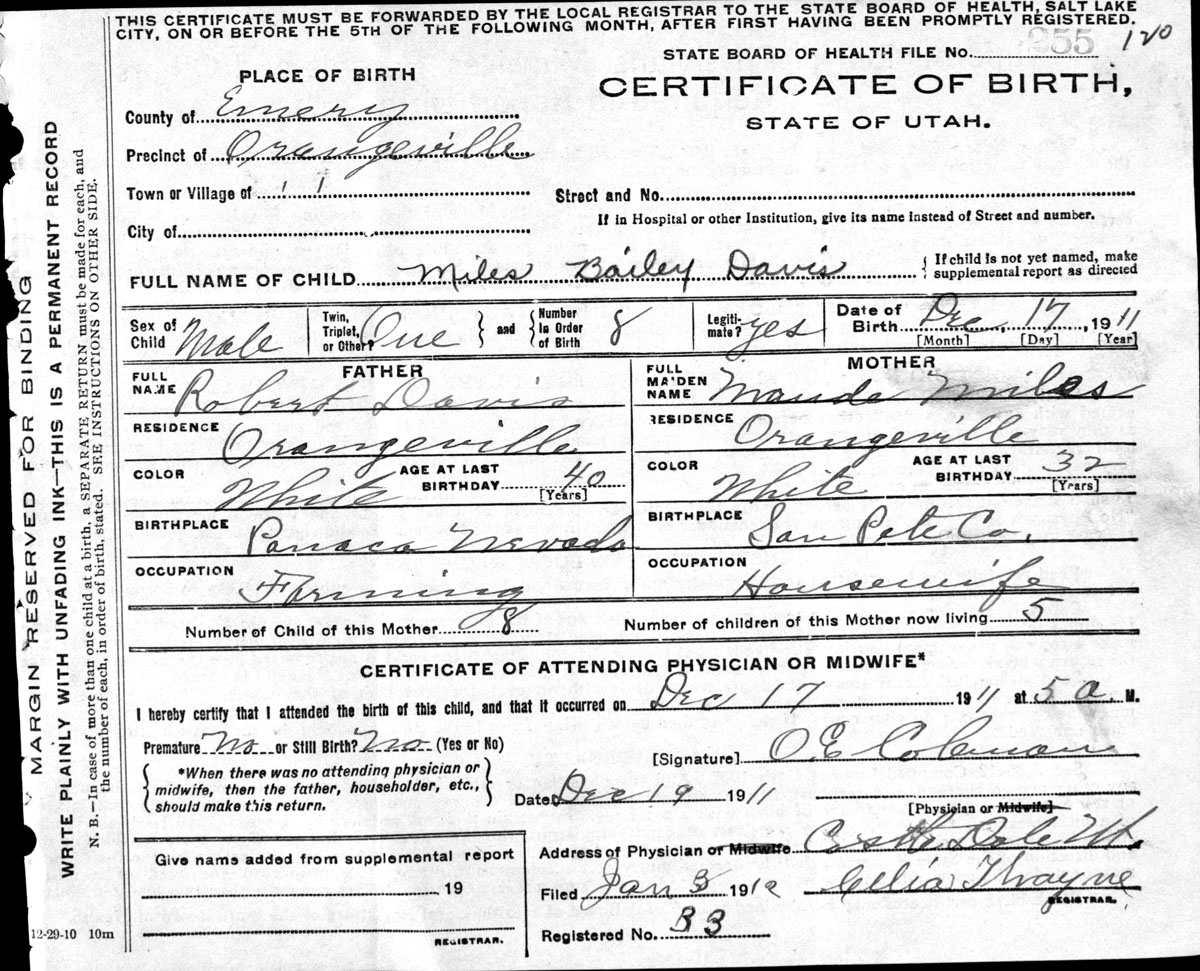 THIS CERTIFICATE MUST BE FORWARDED BY THE LOCAL REGISTRAR TO THE STATE BOARD OF HEALTH, SALT LAKE
CITY, ON OR BEFORE THE 5TH OF THE FOLLOWING MONTH, AFTER FIRST HAVING BEEN PROMPTLY REGISTERED.
STATE BOARD OF HEALTH FILE No. 255 120
PLACE OF BIRTH
CERTIFICATE OF BIRTH,
STATE OF UTAH.
County of Emery
Precinct of Orangeville
Town or Village of ' '
Street and No.
If in Hospital or other Institution, give its name instead of Street and number.
City of
FULL NAME OF CHILD Miles Bailey Davis { If child is not yet named, make
supplemental report as directed
Sex of Child Male
Twin, Triplet, or Other? One } and { Number in Order of Birth 8
Legiti-mate? yes
Date of Birth Dec 17, 1911
[Month] [Day] [Year]
FATHER
MOTHER
FULL NAME Robert Davis
FULL MAIDEN NAME Maude Miles
RESIDENCE Orangeville
RESIDENCE Orangeville
COLOR White AGE AT LAST BIRTHDAY 40 [Years]
COLOR White AGE AT LAST BIRTHDAY 32 [Years]
BIRTHPLACE Panaca Nevada
BIRTHPLACE San Pete Co.
OCCUPATION Farming
OCCUPATION Housewife
Number of Child of this Mother 8
Number of children of this Mother now living 5
CERTIFICATE OF ATTENDING PHYSICIAN OR MIDWIFE*
I hereby certify that I attended the birth of this child, and that it occurred on Dec 17 1911 at 5 a M.
Premature No or Still Birth? No (Yes or No)
[Signature] O.E. Coleman
{ *When there was no attending physician or
midwife, then the father, householder, etc.,
should make this return. }
Dated Dec 19 1911
[Physician or Midwife]
Address of Physician or Midwife Castle Dale Ut.
Give name added from supplemental report
19
REGISTRAR.
Filed Jan 3 1912 Celia Thayne
REGISTRAR.
Registered No. 33
12-29-10 10m
MARGIN RESERVED FOR BINDING
WRITE PLAINLY WITH UNFADING INK—THIS IS A PERMANENT RECORD
N. B.—In case of more than one child at a birth, a SEPARATE RETURN must be made for each, and
the number of each, in order of birth, stated. SEE INSTRUCTIONS ON OTHER SIDE.